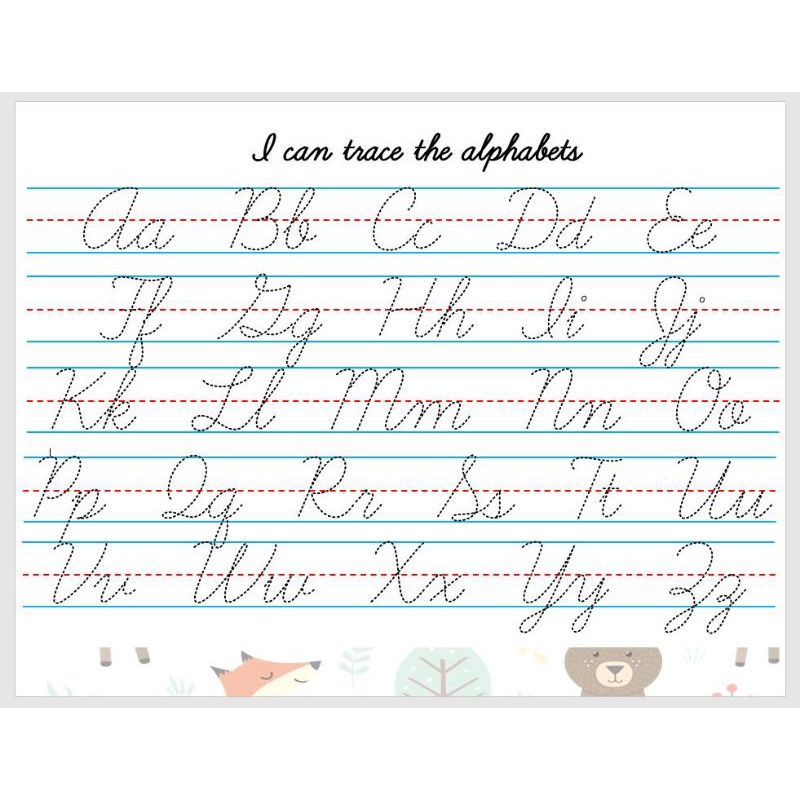 I can trace the alphabets
Aa Bb Cc Dd Ee
Ff Gg Hh Ii Jj
Kk Ll Mm Nn Oo
Pp Qq Rr Ss Tt Uu
Vv Ww Xx Yy Zz